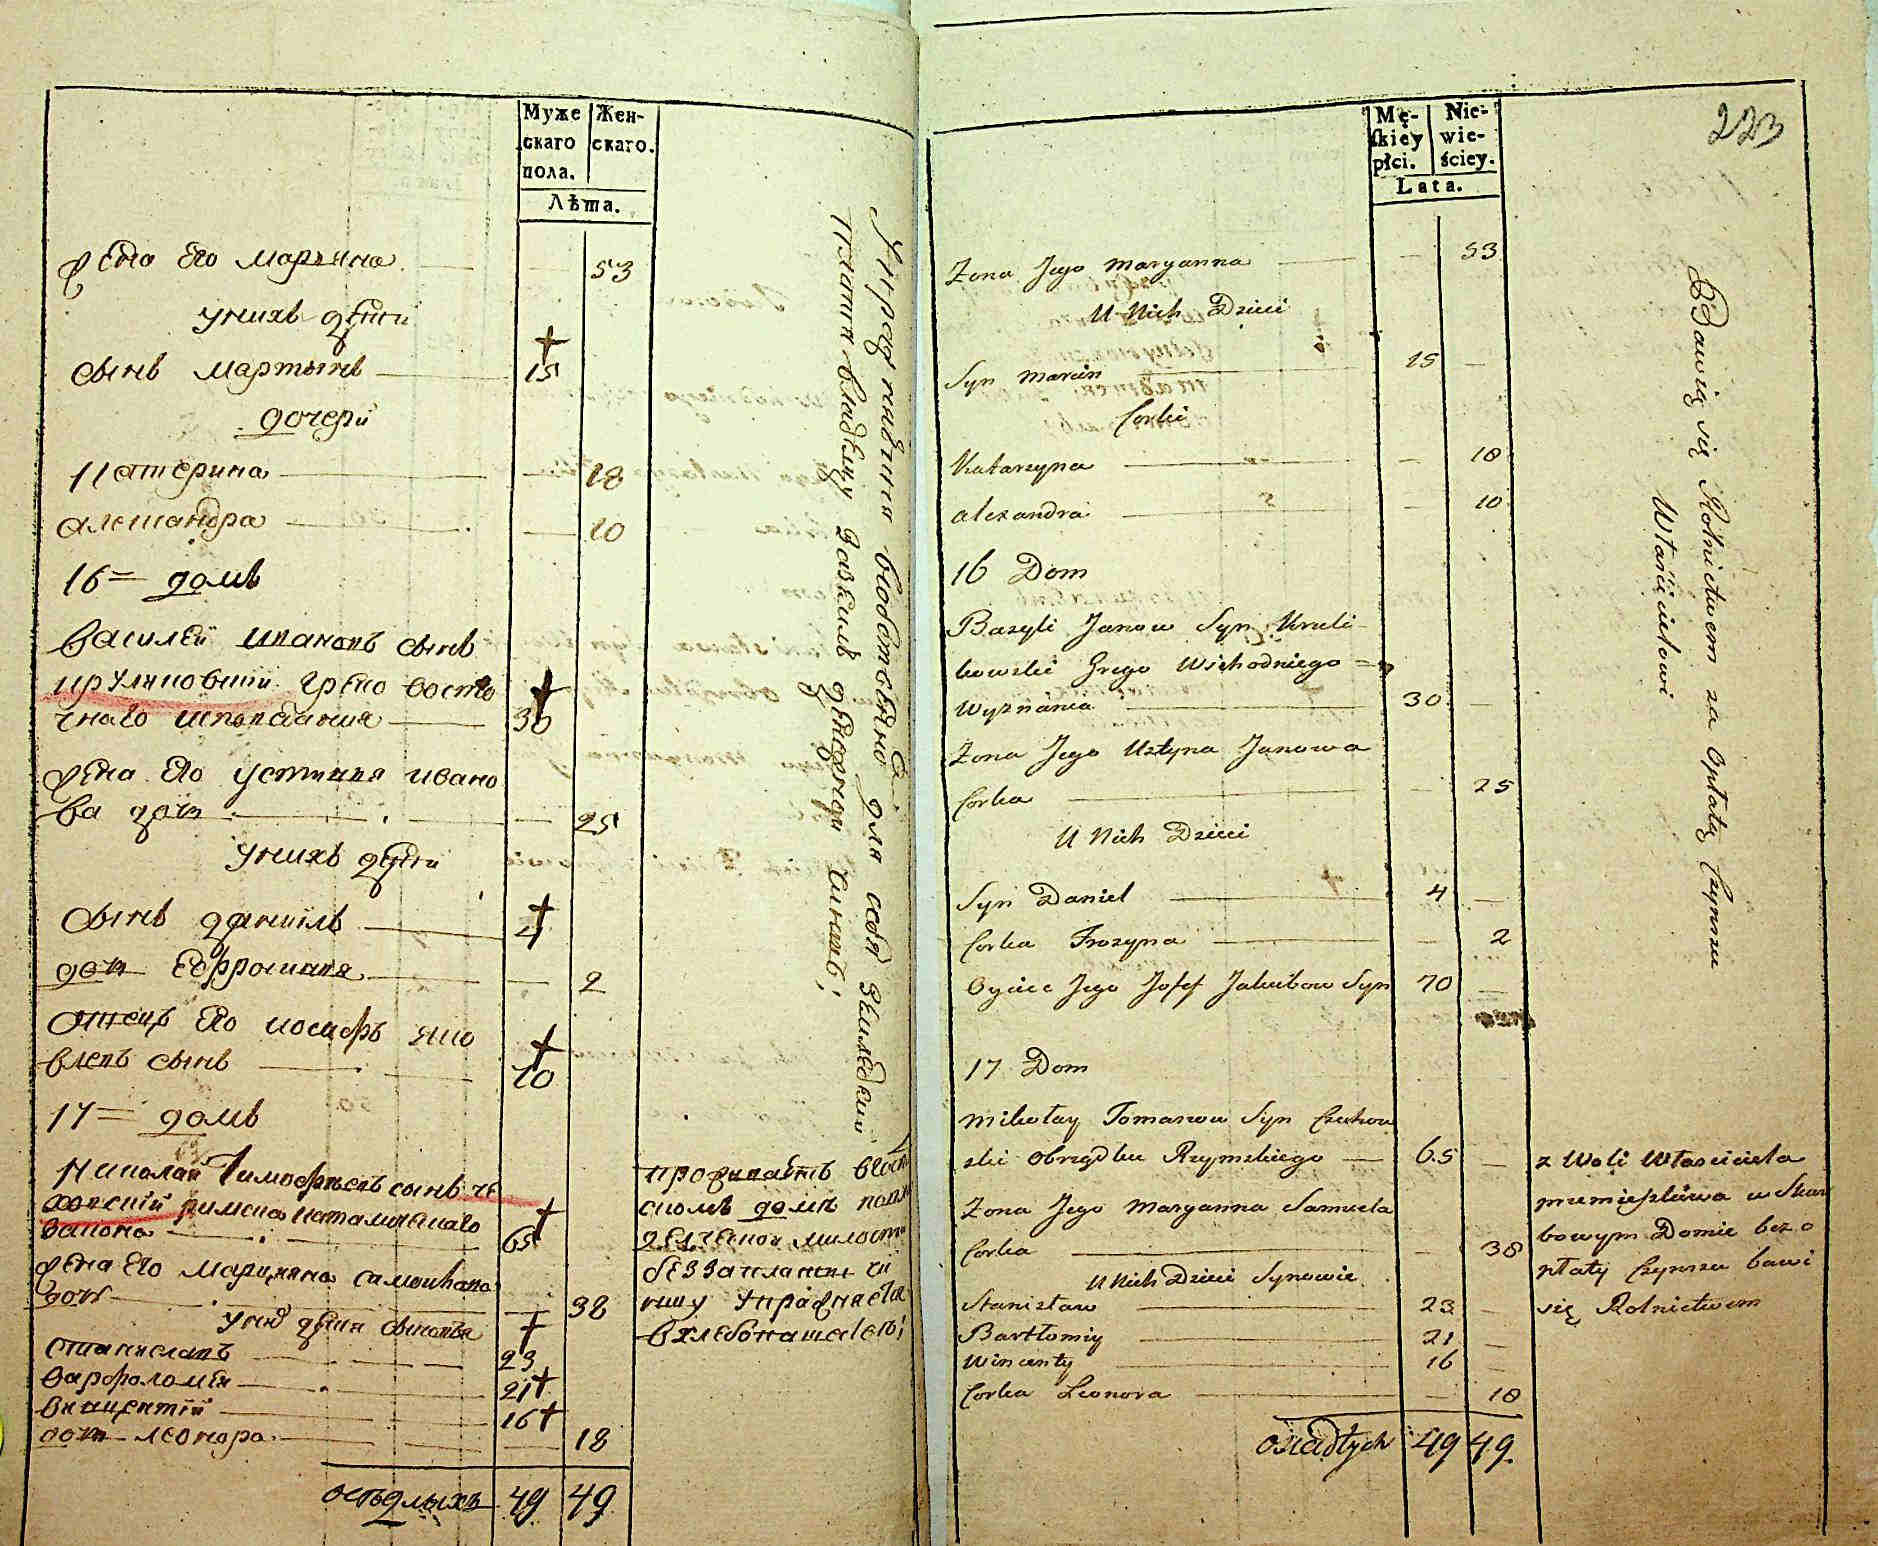 Муже
скаго
пола.
Жен-
скаго.
Лѣта.
Жена Его Марьяна 53
у нихъ дѣти
сынъ Мартынъ 15
дочери
Катерина 18
Александра 10
16 = домъ
Василей Ивановъ сынъ
Круликовскій Греко восто
чнаго исповѣданія 30
Жена Его Устинья Ивано
ва дочь 25
у нихъ дѣти
сынъ Даніилъ 4
дочь Ефросинья 2
Отецъ Его Іосифъ Яко
влевъ сынъ 70
17 = домъ
Николай сынъ Че
ховскій римско католическаго
закона 65
Жена Его Марцыяна Самойлова
дочь 38
у нихъ дѣти сыновья
Станиславъ 23
Варфоломѣй 21
Викентій 16
дочь Леонора 18
осѣдлыхъ 49 49
для себя
платя владѣльцу чиншъ;
проживаетъ
домѣ
без
въ хлебопашествѣ;
223
Mę-
skiey
płci.
Nie-
wie-
ściey.
Lata.
Zona Jego Maryanna — 53
U Nich Dzieci
Syn Marcin 15 —
Corki
Katarzyna — 18
Alexandra — 10
16 Dom
Bazyli Janow Syn Kruli-
kowski Grego Wschodniego
Wyznania 30 —
Zona Jego Ustyna Janowa
Corka — 25
U Nich Dzieci
Syn Daniel 4 —
Corka Frozyna — 2
Oyciec Jego Jozef Jakubow Syn 70 —
17 Dom
Mikołay Tomaszow Syn Czechow
ski Obrządku Rzymskiego 65 —
Zona Jego Maryanna Samuela
Corka — 38
U Nich Dzieci Synowie
Stanisław 23 —
Bartłomiy 21 —
Wincenty 16 —
Corka Leonora — 18
Osiadłych 49 49.
Bawią się Rolnictwem za Opłatą Czynszu
Właścicielowi
z Woli Własciciela
pomieszkiwa w Skar
bowym Domie bez o
płaty Czynszu bawi
się Rolnictwem